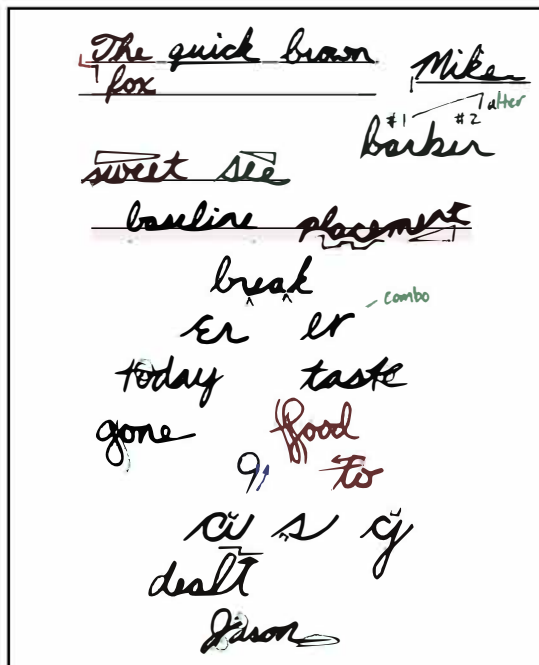 The quick brown
fox
Mike
alter
#1 #2
barker
sweet see
baseline placement
break
Er er
combo
today taste
gone food
9 to
s
dealt
Jason